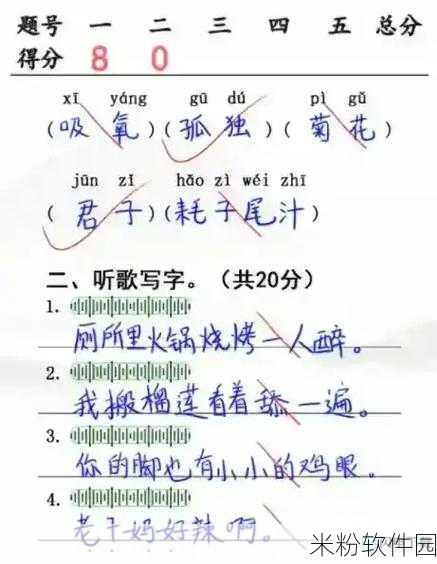 题号 一 二 三 四 五 总分
得分 8 0
xī yáng gū dú pì gǔ
(吸 氧)(孤 独)(菊 花)
jūn zǐ hǎo zì wéi zhī
(君 子)(耗子尾汁)
二、听歌写字。(共20分)
1.
厕所里火锅烧烤一人醉。
2.
我搬榴莲看着舔一遍。
3.
你的脚也有小小的鸡眼。
4.
老干妈好辣啊。
米粉软件园